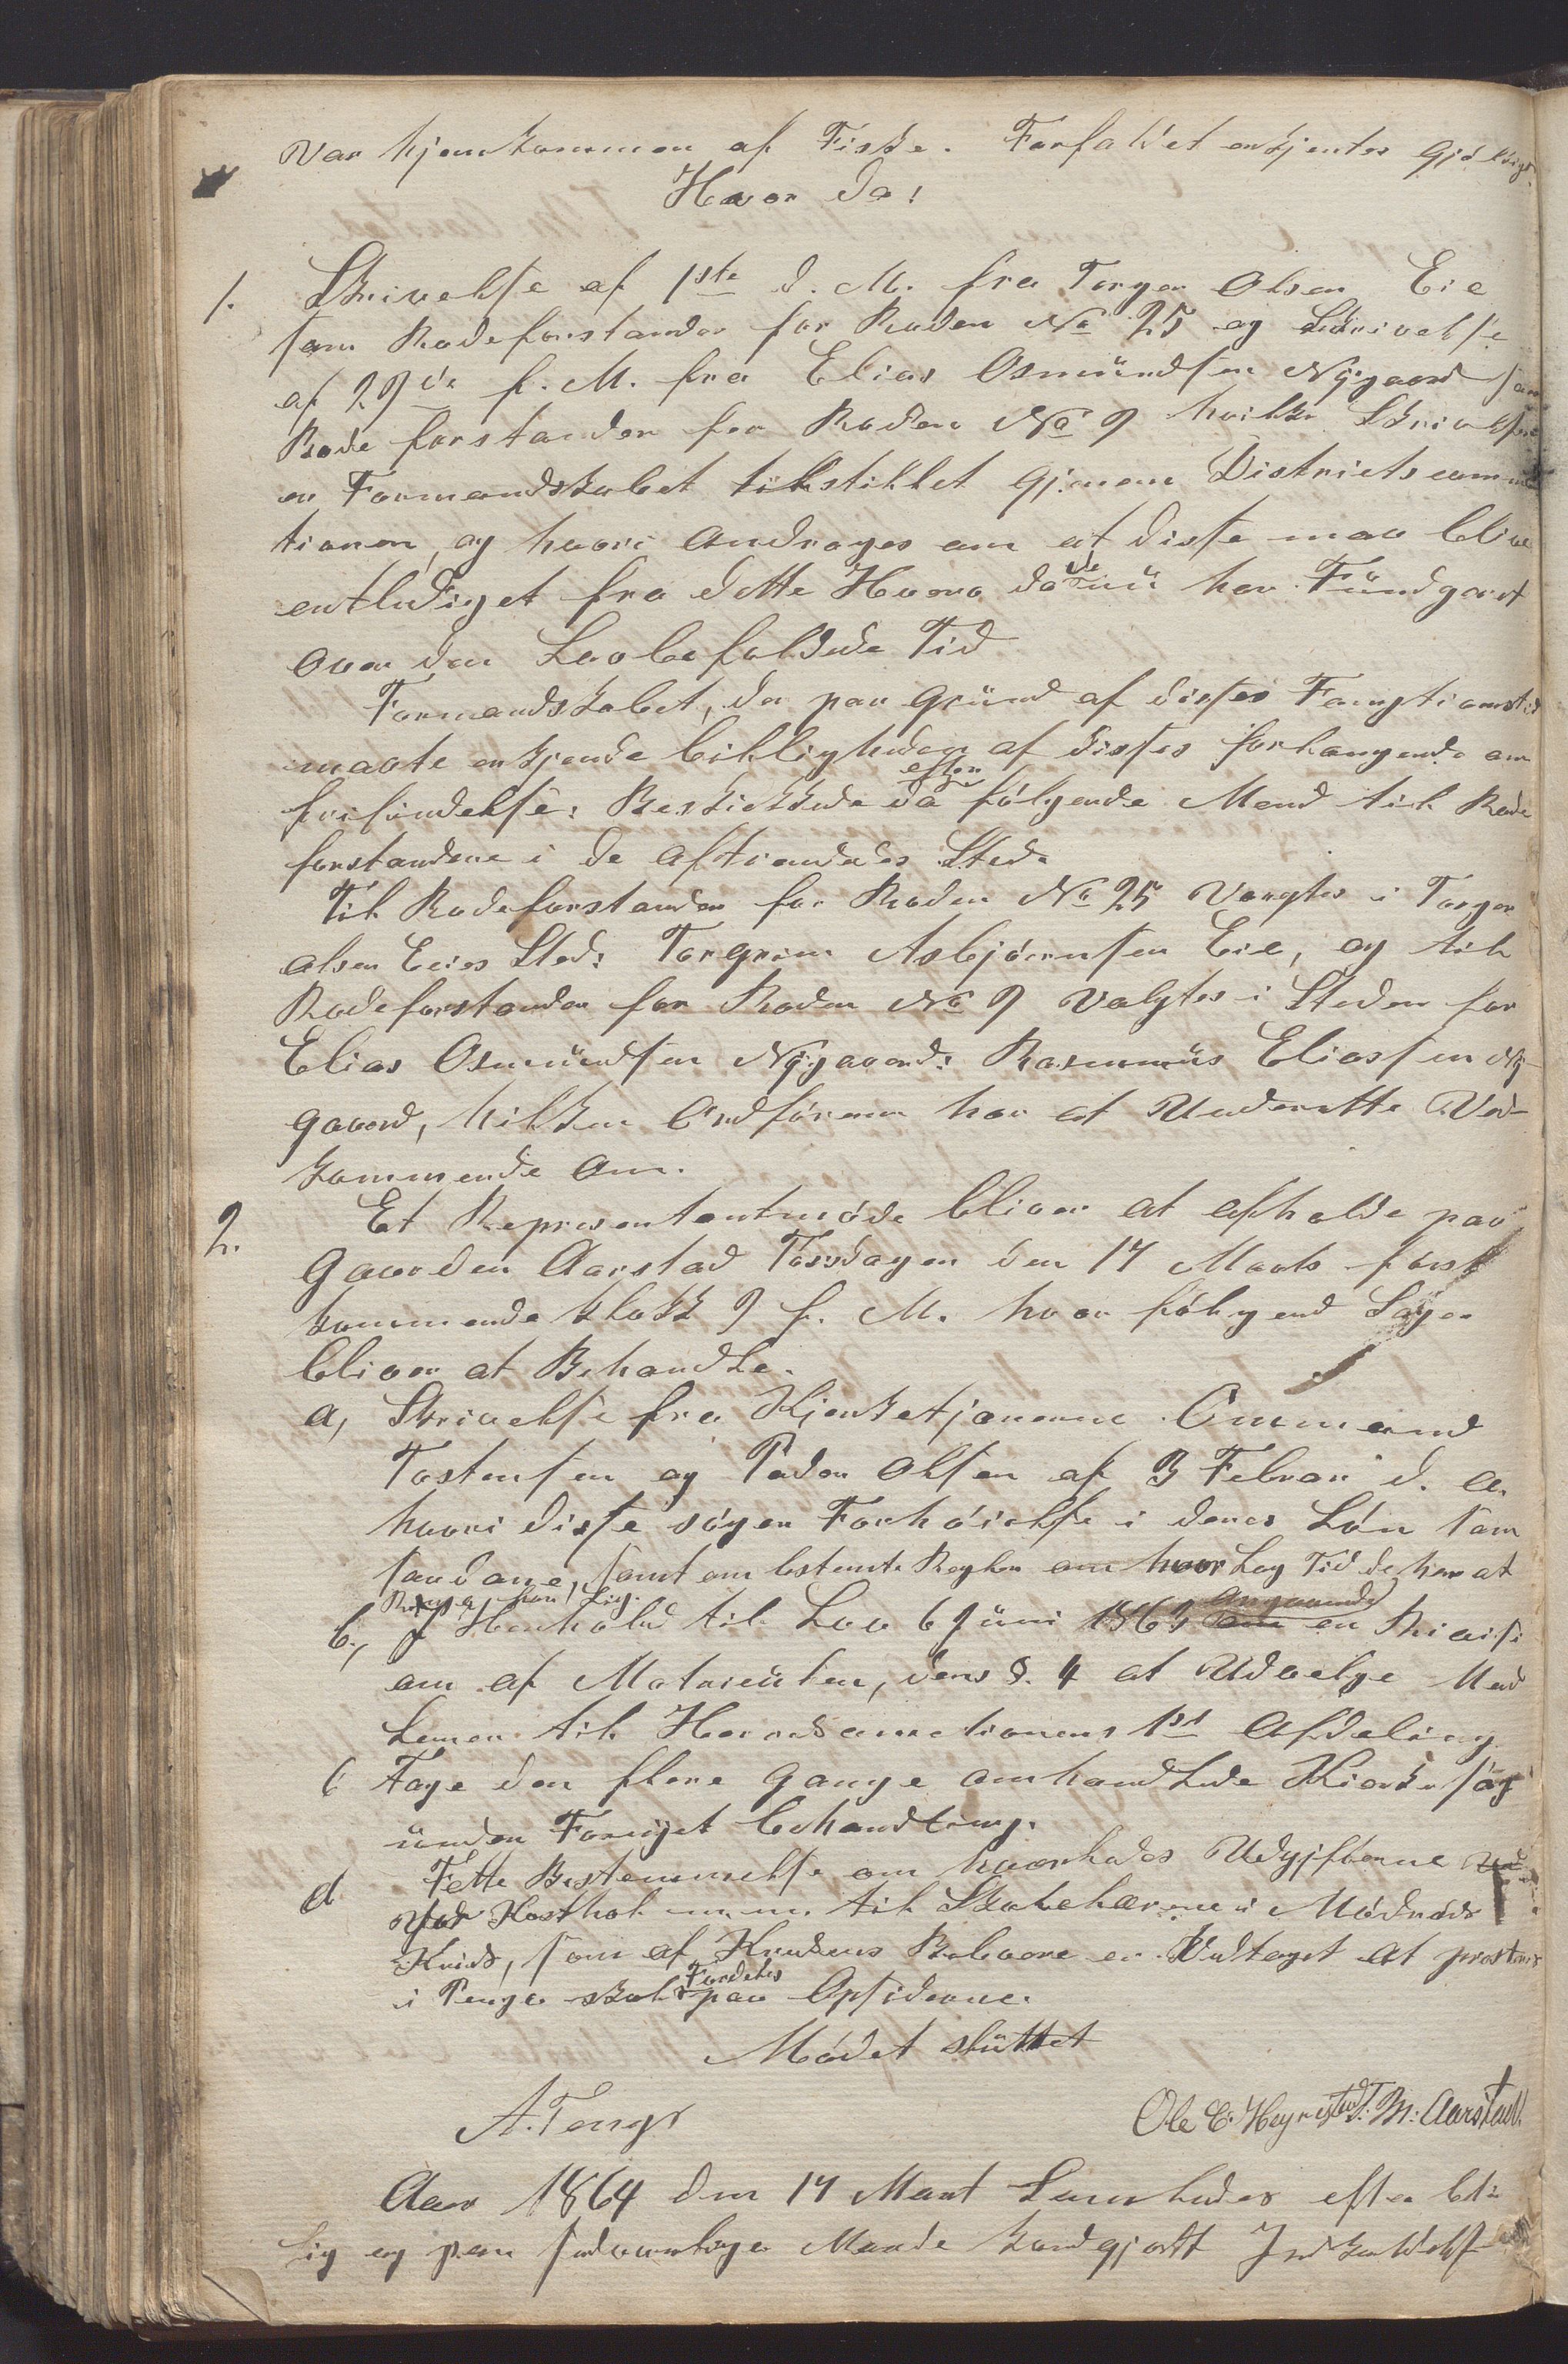 var hjemkommen af Fiske. Forfaldet erkjentes Gjeldigt.
Hvor da!
1. Skrivelse af 1ste d. M. fra Torger Olsen Eie
som Rodeforstander for Roden No 25 og Skrivelse
af 29de f. M. fra Elias Osmundsen Nygaard som
Rode forstander for Roden No 9 hvilke Skrivelser
er Formandskabet tilstillet Gjenem Districtscommi
tionen, og hvori andrages om at disse maa blive
entlediget fra dette Hverv da de nu har Fungeret
over den Lovbefalede Tid
Formandskabet, der paa Grund af disses Famgtionstid
maate erkjende billigheden af disses forlangende om
frifindelse: Beskikkede da efter følgende Mend til Rode
forstandere i de aftredendes Sted.
Til Rodeforstander for Roden No 25 Valgtes i Torger
Olsen Eies Sted: Torgrim Asbjørnsen Eie, og til
Rodeforstander for Roden No 9 Valgtes i Steden for
Elias Osmundsen Nygaard: Rasmus Eliassen Ny-
gaard, hvilken Ordføreren har at Underrette Ved-
kommende om.
2. Et Represententmøde bliver at afholde paa
Gaarden Aarstad Torsdagen den 17 Marts først
kommende Klokk 9 f. M. hvor følgend Sager
bliver at Behandle.
a, Skrivelse fra Kirketjenerne Ommund
Tostensen og Peder Olsen af 3 Februar d. A.
hvori disse søger Forhøielse i deres Løn som
saadane, samt om bestemte Regler om hvor Lag Tid de har at
b, I Henhold til Lov 6 Juni 1863 angaaende en Revisi
on af Matriculen, dens §. 4 at Udvelge Med
lemer til Herredscommitionens 1st Afdeling
c Tage den flere Gange omhandlede Kirkesag
under Fornyet behandling.
d Fette Bestemmelse om hvorledes Udgifterne
for Kostholdet til Skolelærerne i
Kreds, som af Kredsens Beboere er Vedtaget at prestere
i Penge skal Fordeles paa Opsiderne.
Mødet sluttet
A. Tengs
Ole E. Hegrestad. T. M. Aarstad.
Aar 1864 den 17 Mart Samledes efter bti
lig og paa sedvanlige Maade kundgjortt Indkaldelse